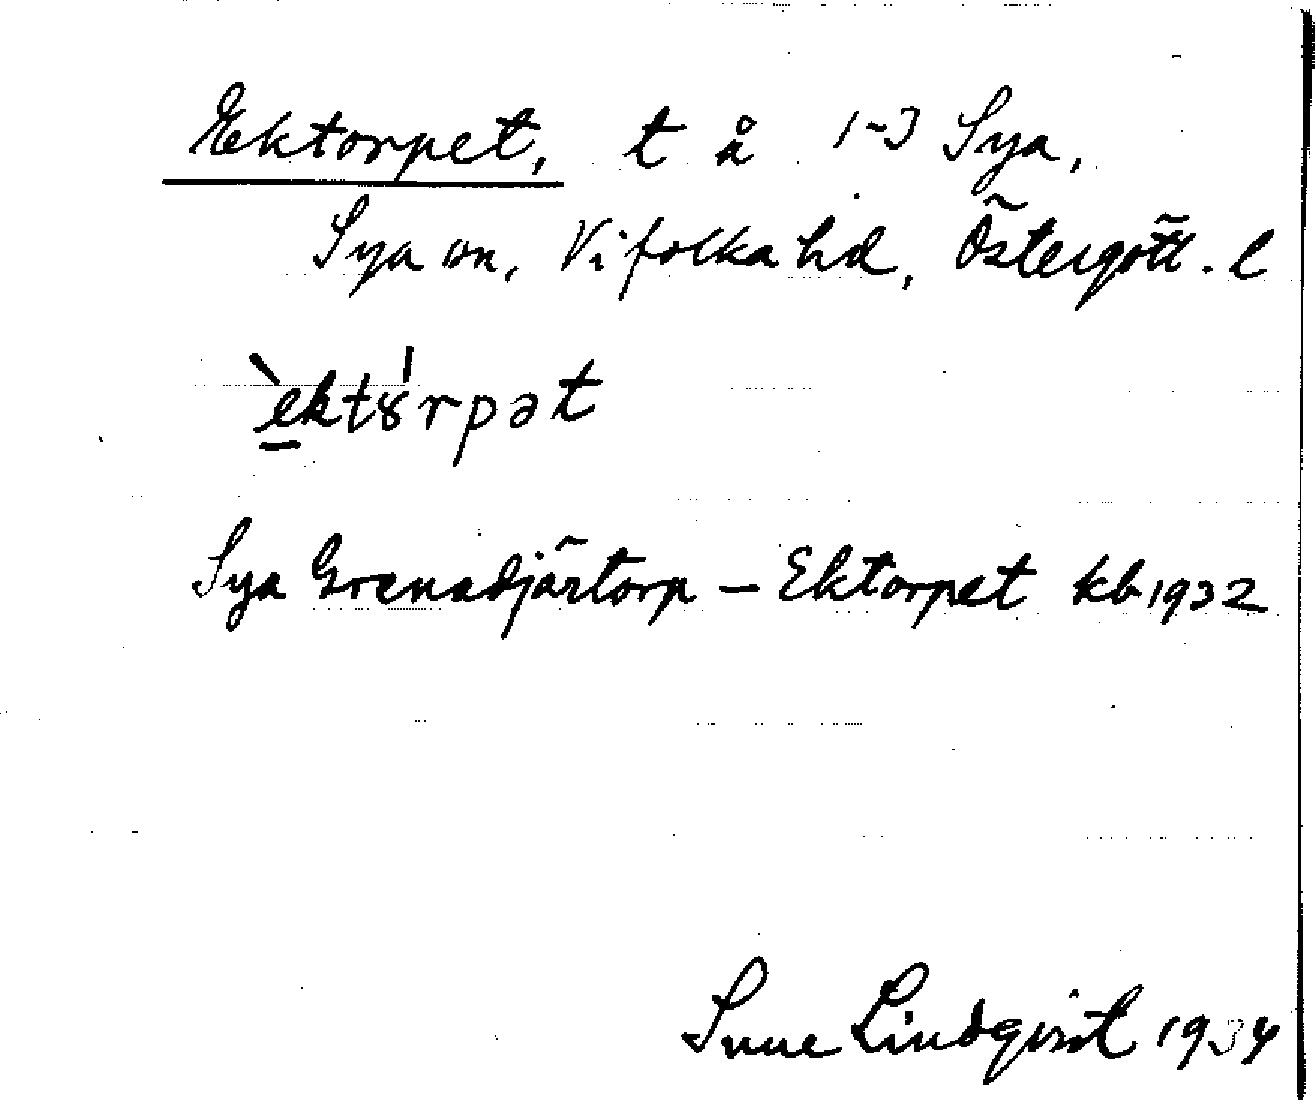 Ektorpet, t å 1-3 Sya,
Sya sn, Vifolka hd, Östergötl. l
`ektȣ'rpət
Sya Grenadjärtorp – Ektorpet kb 1932
Sune Lindqvist 1934